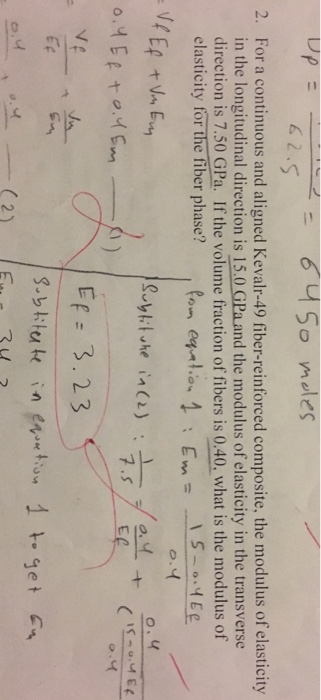 Dp = = 6450 moles
62.5
2. For a continuous and aligned Kevalr-49 fiber-reinforced composite, the modulus of elasticity
in the longitudinal direction is 15.0 GPa and the modulus of elasticity in the transverse
direction is 7.50 GPa. If the volume fraction of fibers is 0.40, what is the modulus of
elasticity for the fiber phase?
= Vf Ef + Vm Em
0.4 Ef + 0.4 Em — (1)
= Vf/Ef + Vm/Em
0.4 + 0.4 — (2)
from equation 1 : Em = 15-0.4Ef / 0.4
Substitute in (2) : 1/7.5 = 0.4/Ef + 0.4/(15-0.4Ef/0.4
Ef = 3.23
Substitute in equation 1 to get Em